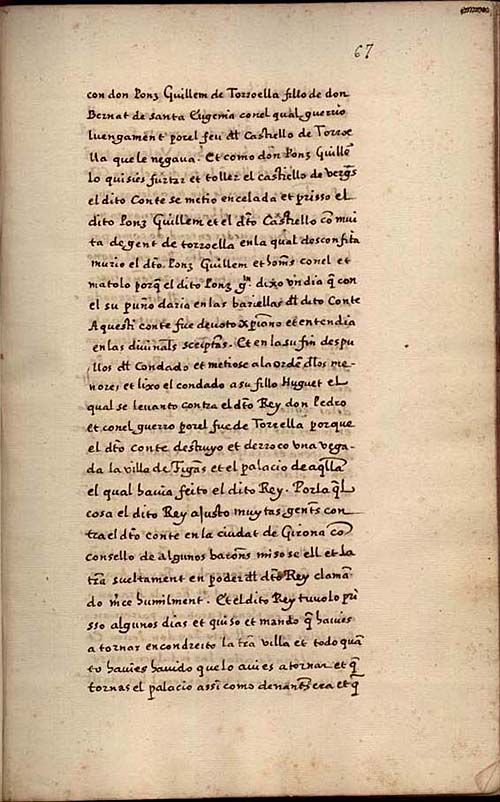 67
con don Ponz Guillem de Torroella fillo de don
Bernat de santa Eugenia con el qual guerrio
luengament por el feu dl Castiello de Torroe
lla que le negava. Et como don Ponz Guillē
lo quisies furtar et toller el castiello de vergs
el dito Conte se metio en celada et prisso el
dito Ponz Guillem et el dto Castiello cō mui
ta de gent de torroella en la qual desconfita
murio el dto. Ponz Guillem et homs con el et
matolo porq̄ el dito Ponz glm dixo vn dia q̄ con
el su puño daria en las bariellas dl dito Conte
Aquesti conte fue devoto xpiano et entendia
en las divinals scriptas. Et en la su fin despu
llos dl Condado et metiose a la ordē dlos me-
nores et lixo el condado a su fillo Huguet el
qual se levanto contra el dto Rey don Pedro
et conel guerro por el fuc de Torrella porque
el dto conte destruyo et derroco vna vega-
da la villa de Figas et el palacio de aqlla
el qual havia feito el dito Rey. Por la q̄l
cosa el dito Rey ajusto muytas gents con
tra el dto conte en la ciudat de Girona cō
consello de algunos barons miso se ell et la
trā sueltament en poder dl dto Rey claman
do mce humilment. Et el dito Rey tuvolo pri
sso algunos dias et quiso et mando q̄ havies
a tornar en condreito la trā villa et todo quā
to havies havido que lo avies a tornar et q̄
tornas el palacio assi como denants era et q̄